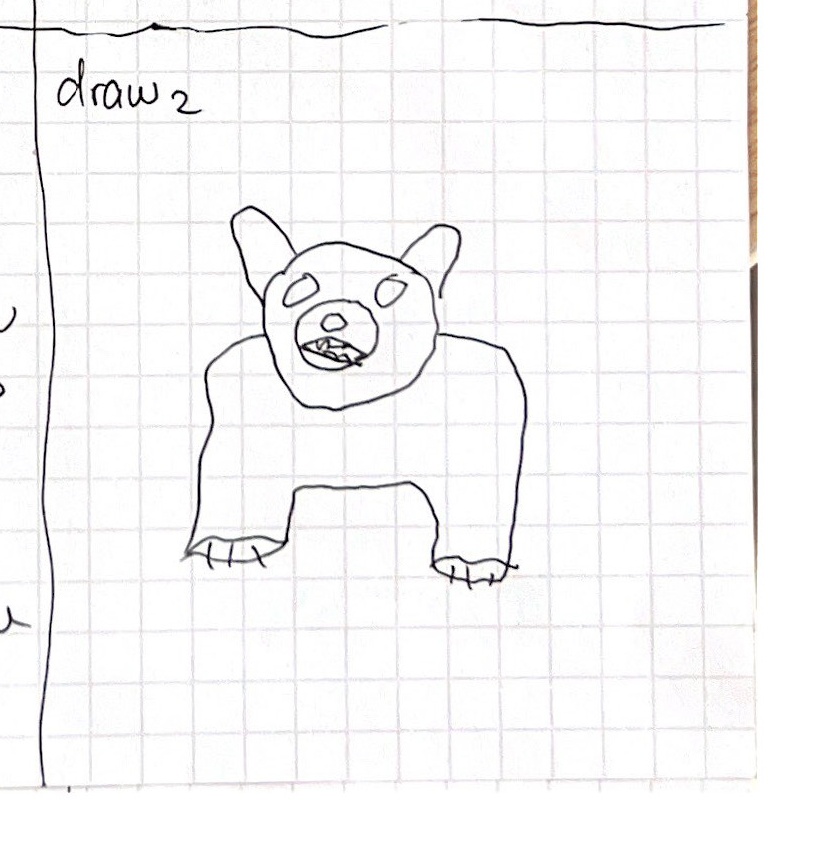 draw 2